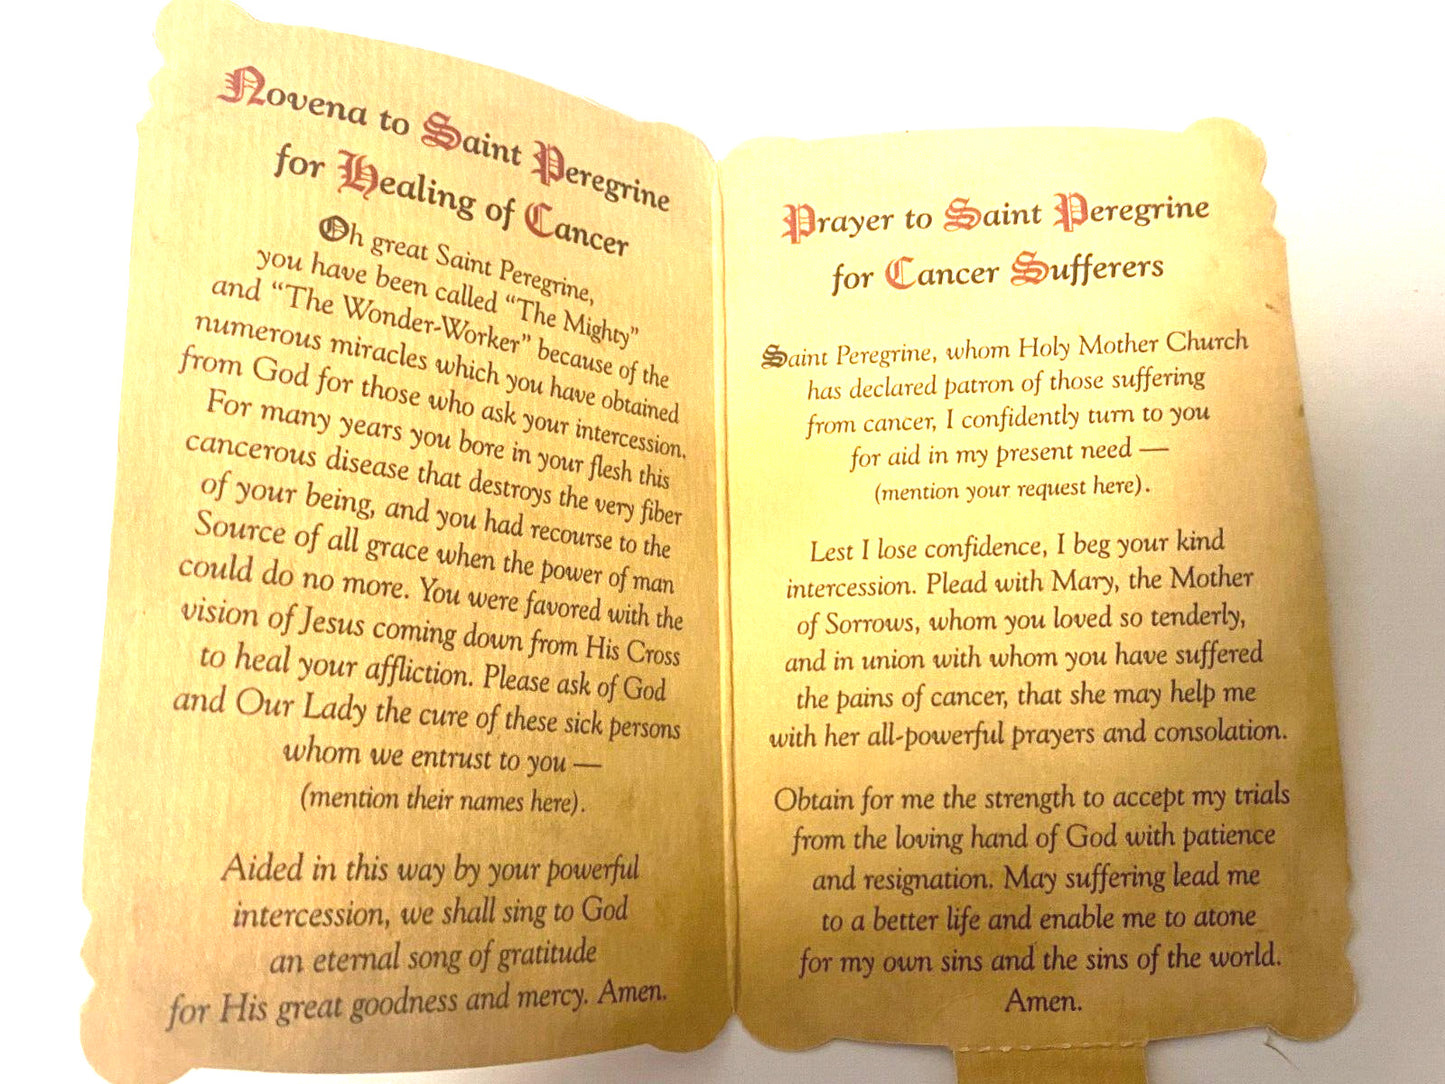 Novena to Saint Peregrine
for Healing of Cancer
Oh great Saint Peregrine,
you have been called “The Mighty”
and “The Wonder-Worker” because of the
numerous miracles which you have obtained
from God for those who ask your intercession.
For many years you bore in your flesh this
cancerous disease that destroys the very fiber
of your being, and you had recourse to the
Source of all grace when the power of man
could do no more. You were favored with the
vision of Jesus coming down from His Cross
to heal your affliction. Please ask of God
and Our Lady the cure of these sick persons
whom we entrust to you —
(mention their names here).
Aided in this way by your powerful
intercession, we shall sing to God
an eternal song of gratitude
for His great goodness and mercy. Amen.
Prayer to Saint Peregrine
for Cancer Sufferers
Saint Peregrine, whom Holy Mother Church
has declared patron of those suffering
from cancer, I confidently turn to you
for aid in my present need —
(mention your request here).
Lest I lose confidence, I beg your kind
intercession. Plead with Mary, the Mother
of Sorrows, whom you loved so tenderly,
and in union with whom you have suffered
the pains of cancer, that she may help me
with her all-powerful prayers and consolation.
Obtain for me the strength to accept my trials
from the loving hand of God with patience
and resignation. May suffering lead me
to a better life and enable me to atone
for my own sins and the sins of the world.
Amen.